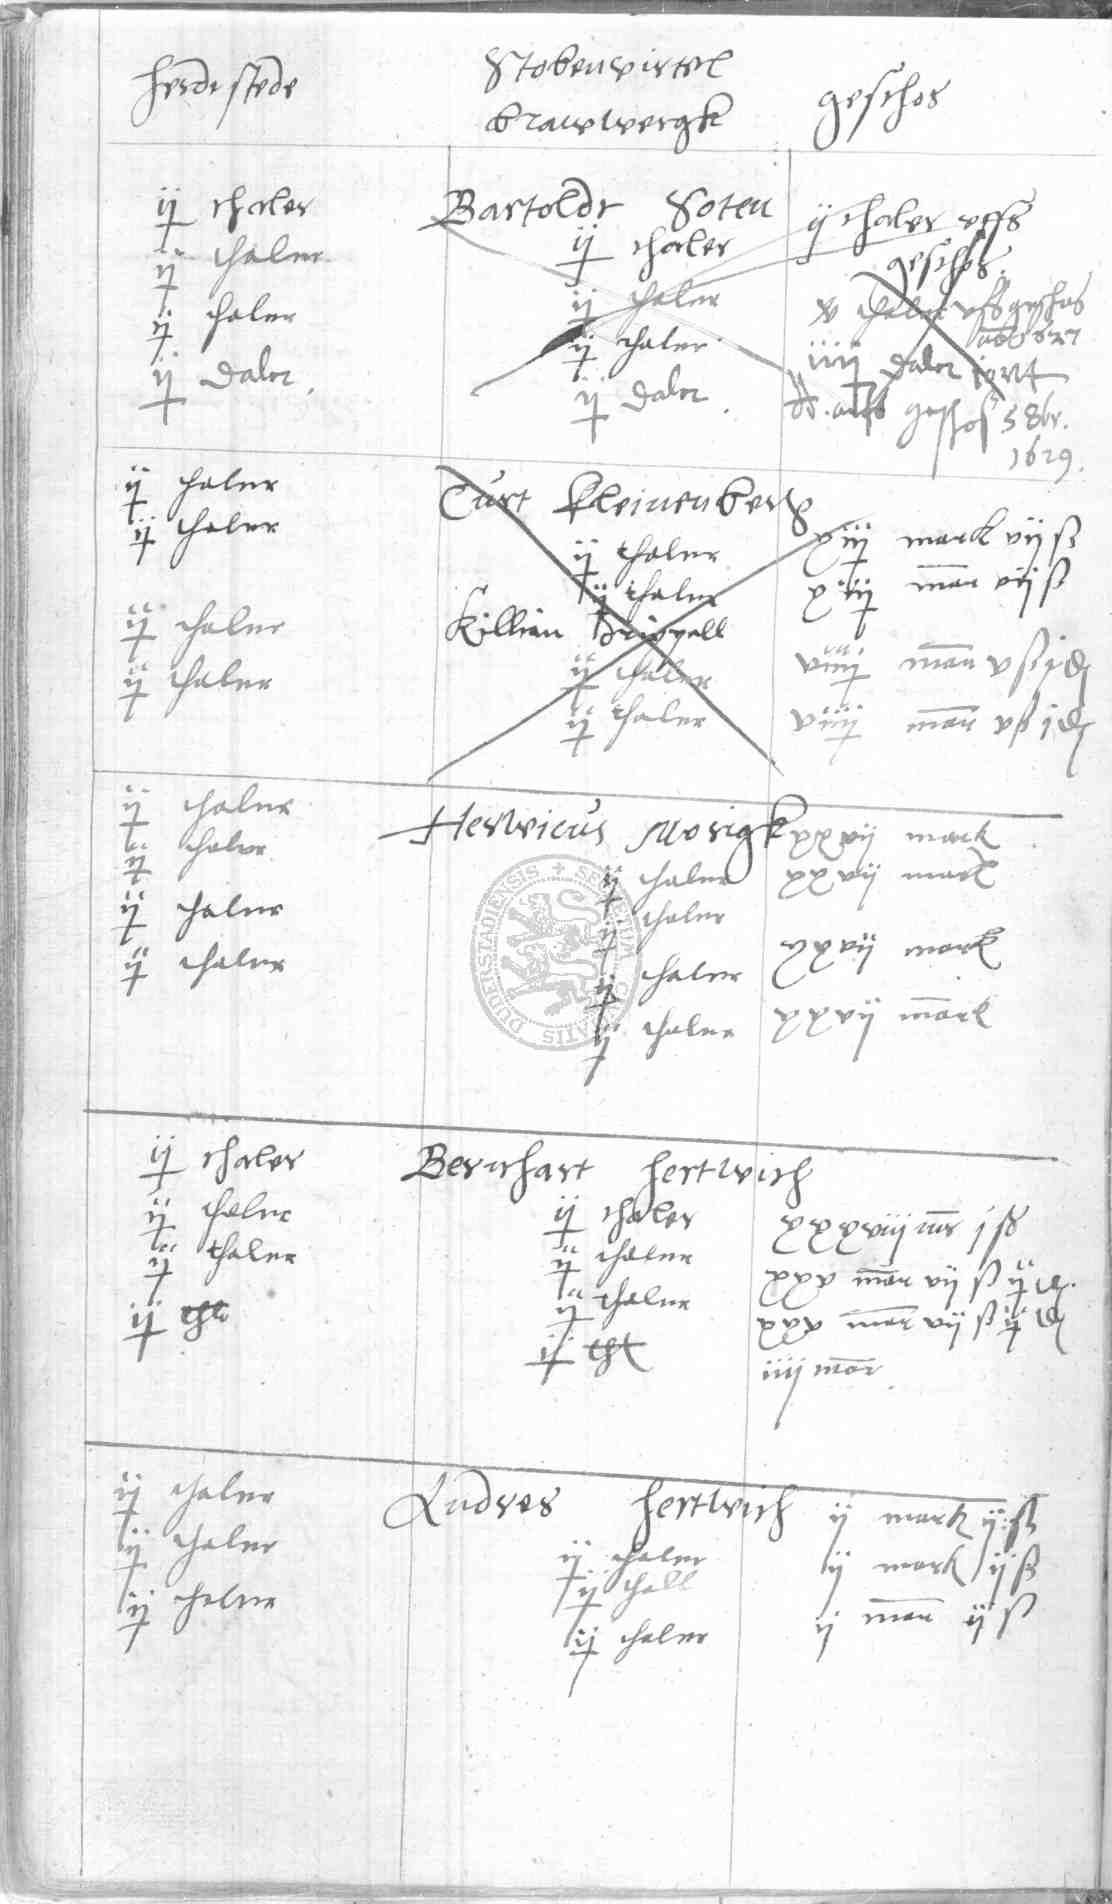 herdtstede
Stobenvirtel
brauwergk
geschos
ij thaler
ij thaler
ij thaler
ij daler
Bartoldt Soten
ij thaler
ij thaler
ij thaler
ij daler
ij thaler uffs
geschos.
v thaler uffs geschos
1627
iiij daler
geschos 5 8br.
1629.
ij thaler
ij thaler
ij thaler
ij thaler
Curt Kleinenberg
ij thaler
ij thaler
Killian
ij thaler
ij thaler
xiij mark vij ß
xiij mar vij ß
viiij mar v ß j d
viiij mar v ß j d
ij thaler
ij thaler
ij thaler
ij thaler
Hervicus Morigk
ij thaler
ij thaler
ij thaler
ij thaler
xxvij mark
xxvij mark
xxvij mark
xxvij mark
DUDERSTADIENSIS + SECRETUM CIVITATIS
ij thaler
ij thaler
ij thaler
ij thl
Bernhart Hertwich
ij thaler
ij thaler
ij thaler
ij thl
xxxviij mr j ß
xxx mar vij ß ij d.
xxx mar vij ß ij d
iiij mar
ij thaler
ij thaler
ij thaler
Andres Hertwich
ij thaler
ij thall
ij thaler
ij mark ij ß
ij mark ij ß
ij mar ij ß